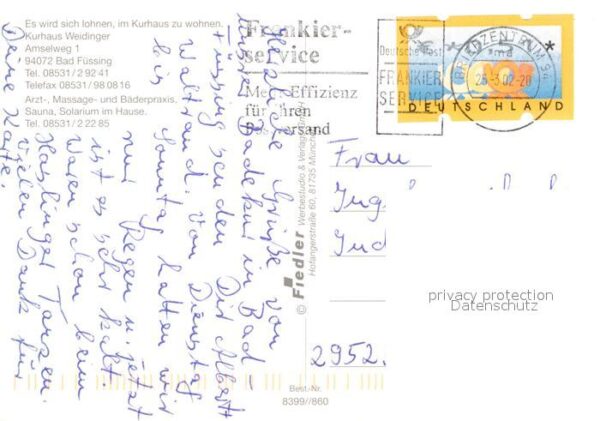 Es wird sich lohnen, im Kurhaus zu wohnen.
Kurhaus Weidinger
Amselweg 1
94072 Bad Füssing
Tel. 08531/2 92 41
Telefax 08531/98 08 16
Arzt-, Massage- und Bäderpraxis,
Sauna, Solarium im Hause.
Tel. 08531/2 22 85
Frankier-
service
Mehr Effizienz
für Ihren
Postversand
Deutsche Post
FRANKIER
SERVICE
BRIEFZENTRUM 94
25-3.02-20
DEUTSCHLAND
Herzliche Grüße von
unserer Badekur in Bad
Füssing senden Dir Albert
Waltraud. Von Dienstag
bis Sonntag hatten wir
nur Regen u. jetzt
ist es sehr kalt.
Waren schon beim
Haslinger Tanzen.
Vielen Dank für
Deine Karte.
© Fiedler Werbestudio & Verlag GmbH
Hofangerstraße 60, 81735 München
Frau
Ing.
Jud
2952.
privacy protection
Datenschutz
Best.-Nr.
8399//860